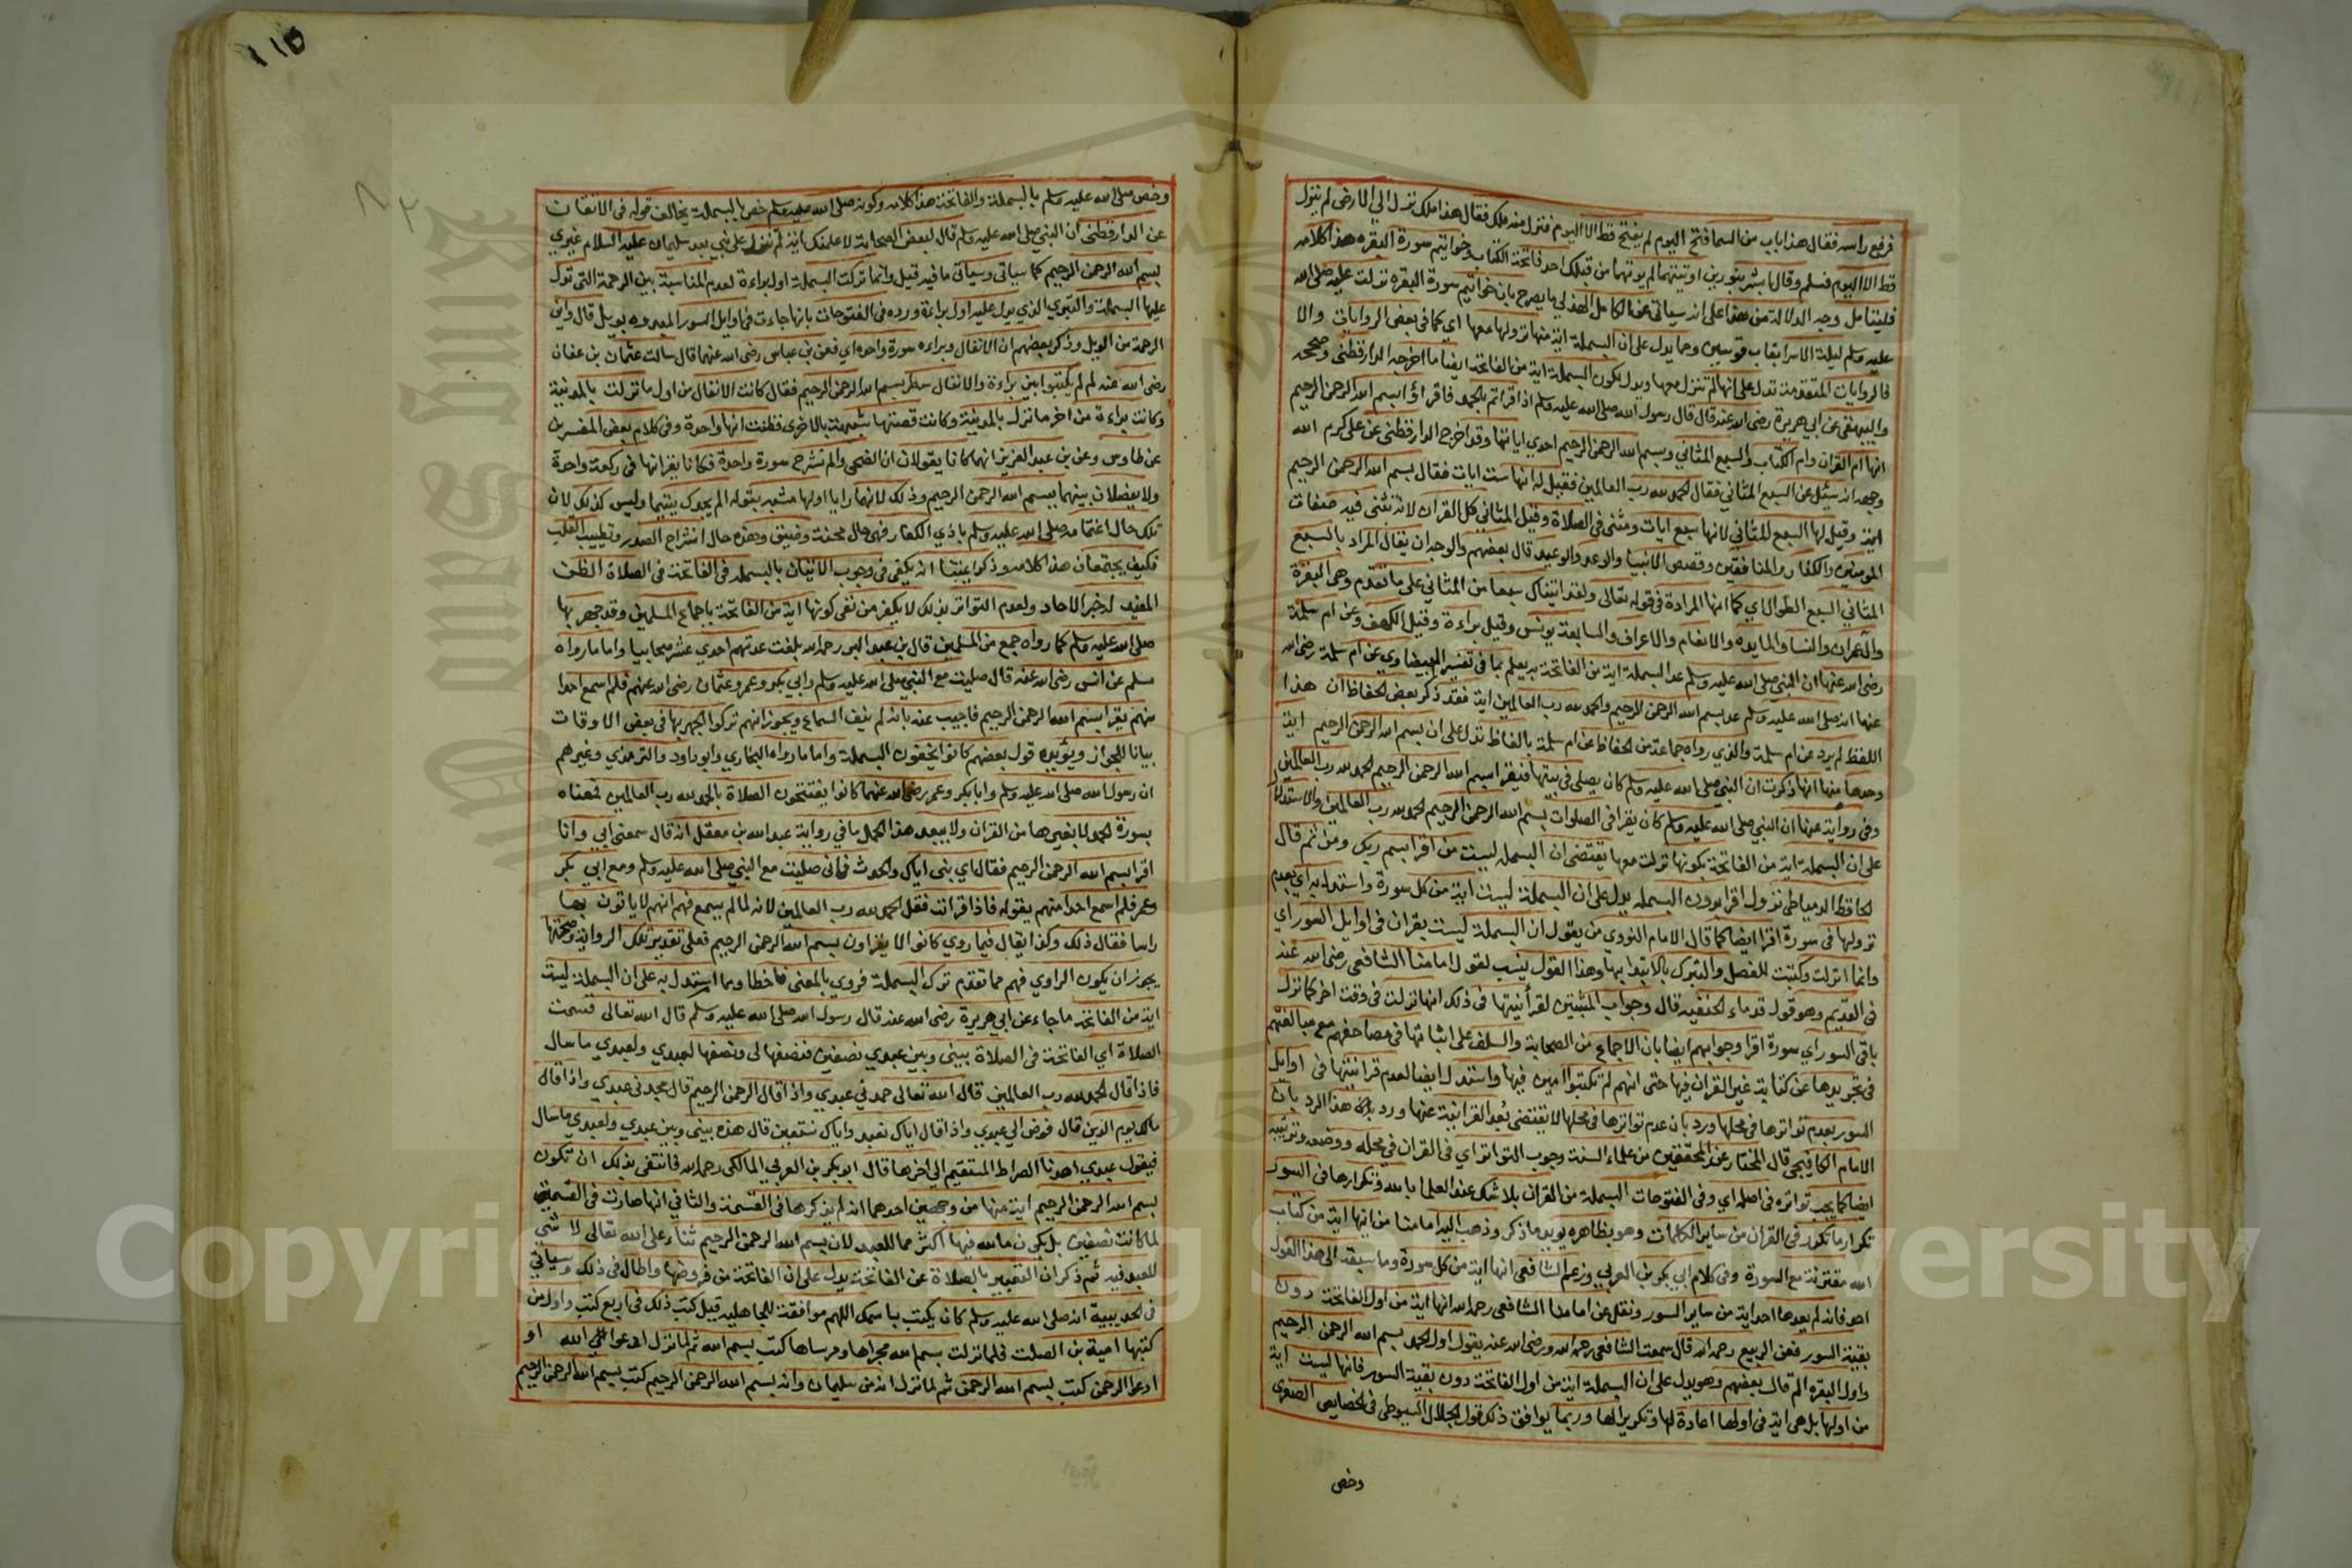 فرفع راسه فقال هذا باب من السما فتح اليوم لم يفتح قط الا اليوم فنزل منه ملك فقال هذا ملك نزل الي الارض لم ينزل
قط الا اليوم فسلم وقال ابشر بنورين اوتيتهما لم يوتهما من قبلك احد فاتحة الكتاب وخواتيم سورة البقره هذا كلامه
فليتامل وجه الدلالة من هذا على انه سياتي عن الكامل الهذلي ما يصرح بان خواتيم سورة البقره نزلت عليه صلى الله
عليه وسلم ليلة الاسرا بقاب قوسين ومما يدل على ان البسملة اية منها نزولها معها اي كما في بعض الروايات والا
فالروايات المتقدمة تدل على انها لم تنزل معها ويدل بكون البسملة اية من الفاتحة ايضا ما اخرجه الدارقطني وصححه
والبيهقي عن ابي هريرة رضي الله عنه قال قال رسول الله صلى الله عليه وسلم اذا قراتم بالحمد فاقرؤا بسم الله الرحمن الرحيم
انها ام القران وام الكتاب والسبع المثاني وبسم الله الرحمن الرحيم احدي اياتها وقد اخرج الدارقطني عن علي كرم الله
وجهه انه سئل عن السبع المثاني فقال الحمد لله رب العالمين فقيل له انها ست ايات فقال بسم الله الرحمن الرحيم
اية وقيل لها السبع المثاني لانها سبع ايات ومثنى في الصلاة وقيل المثاني كل القران لانه يثنى فيه صفات
المومنين والكفار والمنافقين وقصص الانبيا والوعد والوعيد قال بعضهم والوجه ان يقال المراد بالسبع
المثاني السبع الطوال اي كما انها المرادة في قوله تعالى ولقد اتيناك سبعا من المثاني على ما تقدم وهي البقرة
وال عمران والنسا والمايده والانعام والاعراف والسابعة يونس وقيل براءة وقيل الكهف وعن ام سلمة
رضي الله عنها ان النبي صلى الله عليه وسلم عد البسملة اية من الفاتحة به يعلم بما في تفسير البيضاوي عن ام سلمة رضي الله
عنها انه صلى الله عليه وسلم عد بسم الله الرحمن الرحيم والحمد لله رب العالمين اية فقد ذكر بعض الحفاظ ان هذا
اللفظ لم يرد عن ام سلمة والذي رواه جماعة من الحفاظ عن ام سلمة بالفاظ تدل على ان بسم الله الرحمن الرحيم اية
وحدها منها انها ذكرت ان النبي صلى الله عليه وسلم كان يصلي في بيتها فيقرا بسم الله الرحمن الرحيم الحمد لله رب العالمين
وفي رواية عنها ان النبي صلى الله عليه وسلم كان يقرا في الصلوات بسم الله الرحمن الرحيم الحمد لله رب العالمين والاستدلال
على ان البسملة اية من الفاتحة بكونها نزلت معها يقتضي ان البسملة ليست من اقرا بسم ربك ومن ثم قال
الحافظ الدمياطي نزول اقرا بدون البسملة يدل على ان البسملة ليست اية من كل سورة واستدل به اي بعدم
نزولها في سورة اقرا ايضا كما قال الامام النووي من يقول ان البسملة ليست بقران في اوايل السور اي
وانما انزلت وكتبت للفصل والتبرك بالابتدا بها وهذا القول ينسب لقول امامنا الشافعي رضي الله عنه
في القديم وهو قول قدماء الحنفيه قال وجواب المثبتين لقرأنيتها في ذلك انها نزلت في وقت اخر كما نزل
باقي السور اي سورة اقرا وجوابهم ايضا بان الاجماع من الصحابة والسلف على اثباتها في مصاحفهم مع مبالغتهم
في تجريدها عن كتابة غير القران فيها حتى انهم لم تكتبوا امين فيها واستدل ايضا لعدم قرانيتها في اوايل
السور بعدم تواترها في محلها ورد بان عدم تواترها في محلها لا يقتضي بعد القرانية عنها ورد هذا الرد بان
الامام الكافيجي قال المختار عند المحققين من علماء السنة وجوب التواتر اي في القران في محله ووضعه وترتيبه
ايضا كما يجب تواتره في اصله اي وفي الفتوحات البسملة من القران بلا شك عند العلما بالله وتكرارها في السور
تكرار ما تكرر في القران من ساير الكلمات وهو بظاهره يويد ما ذكر وذهب اليه امامنا من انها اية من كتاب
الله مقترنة مع السورة وفي كلام ابي بكر بن العربي وزعم الشافعي انها اية من كل سورة وما سبقه الى هذا القول
احد فانه لم يعدها احد اية من ساير السور ونقل عن امامنا الشافعي رحمه الله انها اية من اول الفاتحة دون
بقية السور فعن الربيع رحمه الله قال سمعت الشافعي رحمه الله ورضي الله عنه يقول اول الحمد بسم الله الرحمن الرحيم
واول البقره الم قال بعضهم وهو يدل على ان البسملة اية من اول الفاتحة دون بقية السور فانها ليست اية
من اولها بل هي اية في اولها اعادة لها وتكريرا لها وربما يوافق ذلك قول الجلال السيوطي في الخصايص الصغرى
وخص
١١٥
وخص صلى الله عليه وسلم بالبسملة والفاتحة هذا كلامه وكونه صلى الله عليه وسلم خص بالبسملة يخالف قوله في الاتقان
عن الدارقطني ان النبي صلى الله عليه وسلم قال لبعض الصحابة لاعلمنك اية لم تنزل على نبي بعد سليمان عليه السلام غيري
بسم الله الرحمن الرحيم كما سياتي وسياتي ما فيه قيل وانما تركت البسملة اول براءة لعدم المناسبة بين الرحمة التي تدل
عليها البسملة والتبري الذي يدل عليه اول براءة ورده في الفتوحات بانها جاءت في اوايل السور المبدوه بويل قال واين
الرحمة من الويل وذكر بعضهم ان الانفال وبراءه سورة واحده اي فعن بن عباس رضي الله عنهما قال سالت عثمان بن عفان
رضي الله عنه لم لم يكتبوا بين براءة والانفال سطر بسم الله الرحمن الرحيم فقال كانت الانفال من اول ما نزلت بالمدينة
وكانت براءة من اخر ما نزل بالمدينة وكانت قصتها شبيهة بالاخرى فظنت انها واحدة وفي كلام بعض المفسرين
عن طاوس وعن بن عبد العزيز انهما كانا يقولان ان الضحى والم نشرح سورة واحدة فكانا يقرانها في ركعة واحدة
ولا يفصلان بينهما ببسم الله الرحمن الرحيم وذلك لانهما رايا اولها مشبه بقوله الم يجدك يتيما وليس كذلك لان
تلك حال اغتمامه صلى الله عليه وسلم باذي الكفار فهي حال محنة وضيق وهذه حال انشراح الصدر وتطييب القلب
فكيف يجتمعان هذا كلامه وذكر ايمتنا انه يكفي في وجوب الاتيان بالبسملة في الفاتحة في الصلاة الظن
المفيد له خبر الاحاد ولعدم التواتر بذلك لا يكفر من نفى كونها اية من الفاتحة باجماع المسلمين وقد جهر بها
صلى الله عليه وسلم كما رواه جمع من المسلمين قال بن عبد البر رحمه الله بلغت عدتهم احدي عشر صحابيا واما ما رواه
مسلم عن انس رضي الله عنه قال صليت مع النبي صلى الله عليه وسلم وابي بكر وعمر وعثمان رضي الله عنهم فلم اسمع احدا
منهم يقرا بسم الله الرحمن الرحيم فاجيب عنه بانه لم ينف السماع ويجوز انهم تركوا الجهر بها في بعض الاوقات
بيانا للجواز ويؤيده قول بعضهم كانوا يخفون البسملة واما ما رواه البخاري وابو داود والترمذي وغيرهم
ان رسول الله صلى الله عليه وسلم وابا بكر وعمر رضي الله عنهما كانوا يفتتحون الصلاة بالحمد لله رب العالمين فمعناه
بسورة الحمد لا بغيرها من القران ولا يبعد هذا الحمل ما في رواية عبد الله بن مغفل انه قال سمعني ابي وانا
اقرا بسم الله الرحمن الرحيم فقال اي بني اياك والحدث فاني صليت مع النبي صلى الله عليه وسلم ومع ابي بكر
وعمر فلم اسمع احدا منهم يقوله فاذا قرات فقل الحمد لله رب العالمين لانه لما لم يسمع فهم انهم لا ياتون بها
راسا فقال ذلك وكذا يقال فيما روي كانوا لا يقراون بسم الله الرحمن الرحيم فعلى تقدير تلك الرواية وصحتها
يجوز ان يكون الراوي فهم مما تقدم ترك البسملة فروي بالمعنى فاخطا ومما استدل به على ان البسملة ليست
اية من الفاتحة ما جاء عن ابي هريرة رضي الله عنه قال رسول الله صلى الله عليه وسلم قال الله تعالى قسمت
الصلاة اي الفاتحة في الصلاة بيني وبين عبدي نصفين فنصفها لي ونصفها لعبدي ولعبدي ما سال
فاذا قال الحمد لله رب العالمين قال الله تعالى حمدني عبدي واذا قال الرحمن الرحيم قال مجدني عبدي واذا قال
مالك يوم الدين قال فوض الي عبدي واذا قال اياك نعبد واياك نستعين قال هذه بيني وبين عبدي ولعبدي ما سال
فيقول عبدي اهدنا الصراط المستقيم الى اخرها قال ابو بكر بن العربي المالكي رحمه الله فانتفى بذلك ان تكون
بسم الله الرحمن الرحيم اية منها من وجهين احدهما انه لم يذكرها في القسمة والثاني انها صارت في القسمة
لما كانت نصفين بل يكون ما لله فيها اكثر مما للعبد لان بسم الله الرحمن الرحيم ثناء على الله تعالى لا شي
للعبد فيه ثم ذكر ان التعبير بالصلاة عن الفاتحة يدل على ان الفاتحة من فروضها واطال في ذلك وسياتي
في الحديبية انه صلى الله عليه وسلم كان يكتب باسمك اللهم موافقة للجاهليه قيل كتب ذلك في اربع كتب واول من
كتبها امية بن الصلت فلما نزلت بسم الله مجراها ومرساها كتب بسم الله ثم لما نزل ادعوا الله او
ادعوا الرحمن كتب بسم الله الرحمن ثم لما نزل انه من سليمان وانه بسم الله الرحمن الرحيم كتب بسم الله الرحمن الرحيم
Copyright © King Saud University